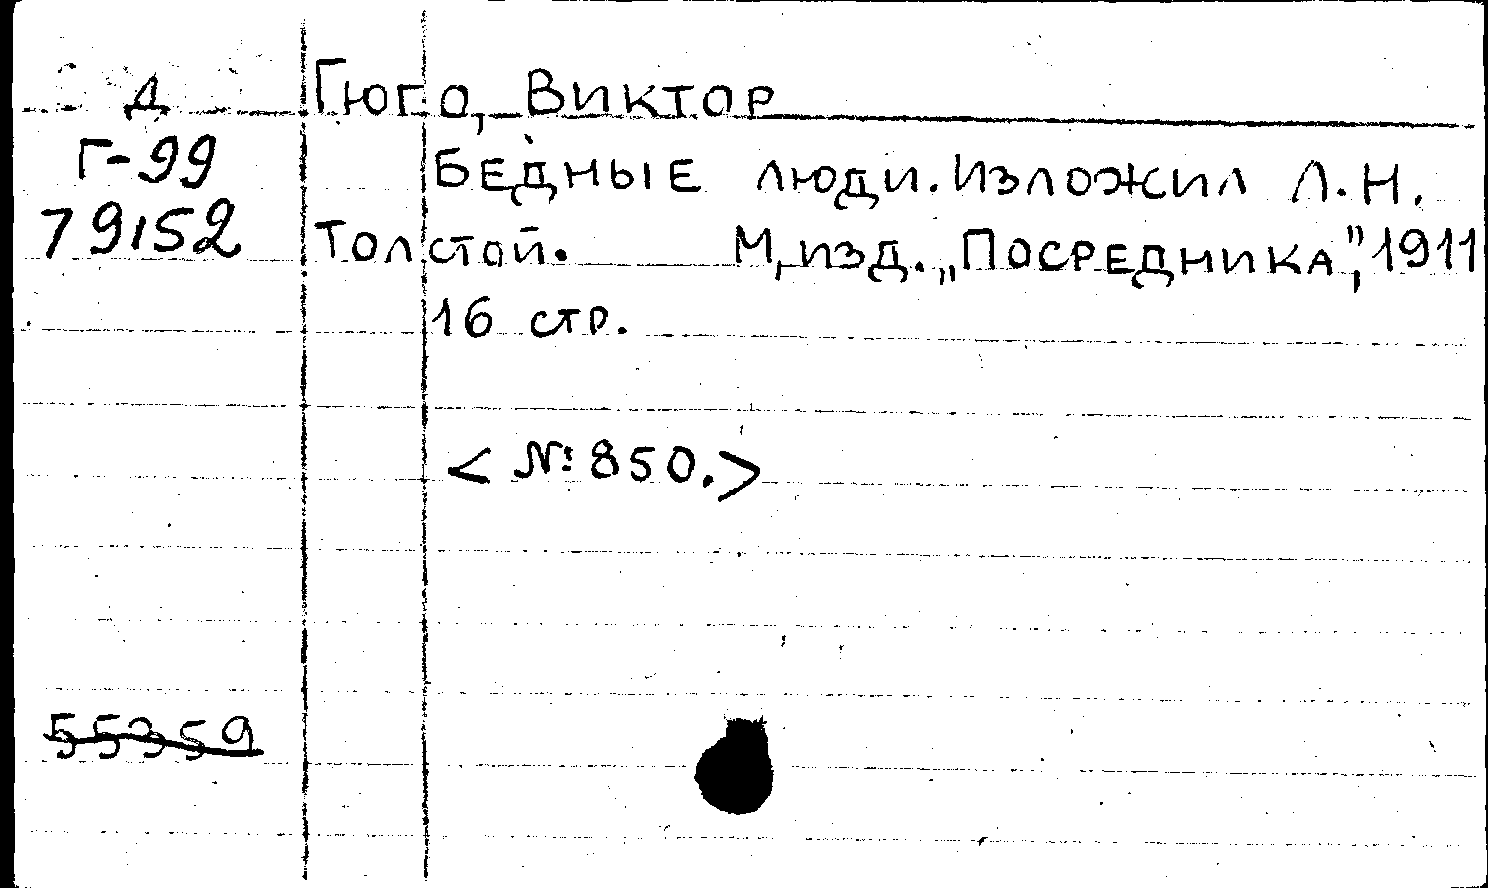 Д Гюго, Виктор
Г-99 Бедные люди. Изложил Л.Н.
79152 Толстой. М, изд. „Посредника", 1911
16 стр.
< №850.>
55359